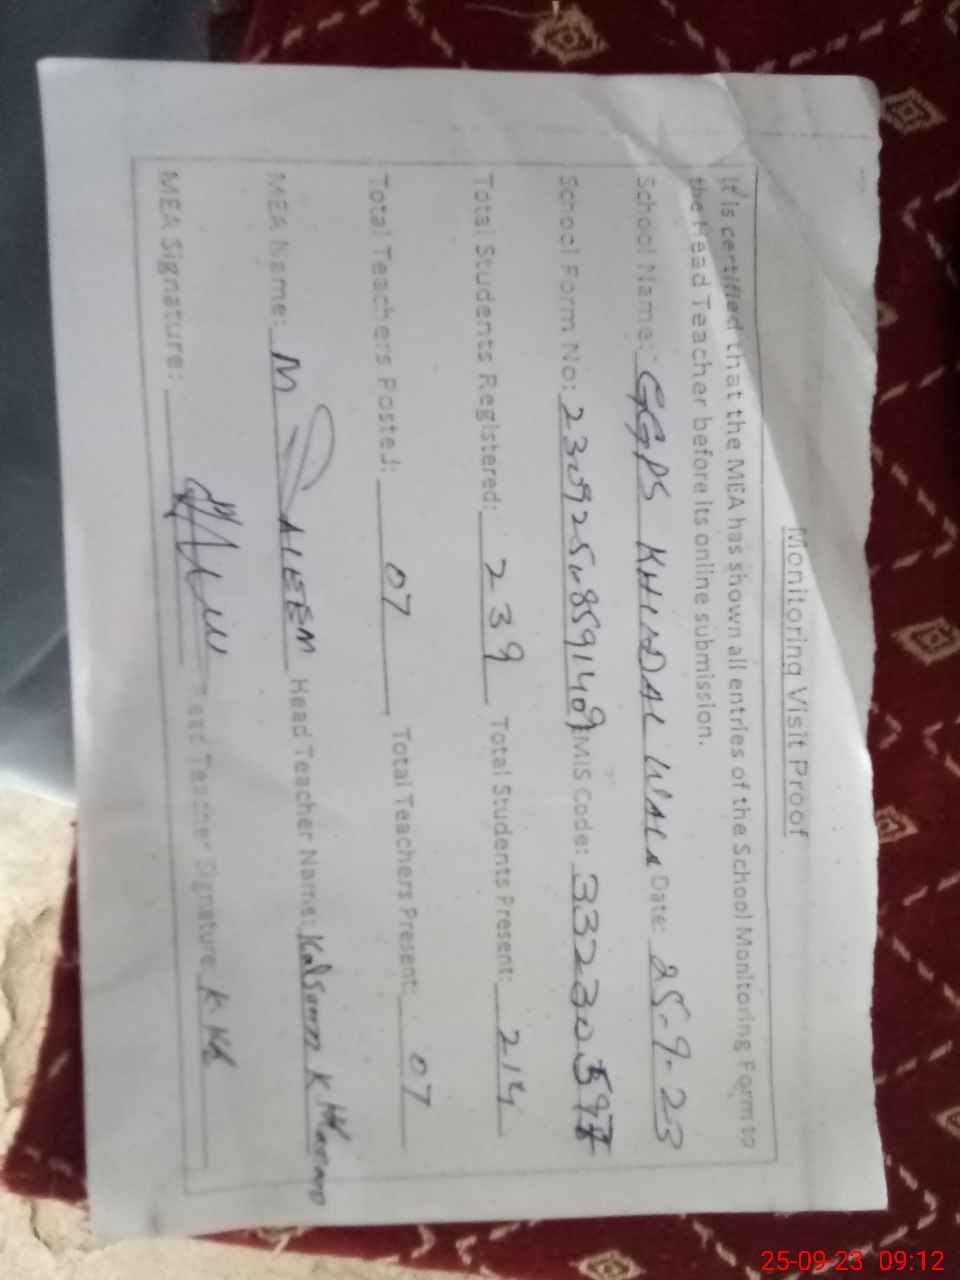 Monitoring Visit Proof
It is certified that the MEA has shown all entries of the School Monitoring Form to
the Head Teacher before its online submission.
School Name: GGPS KHINDAL WALA Date: 25-9-23
School Form No: EMIS Code:
Total Students Registered: 239 Total Students Present: 214
Total Teachers Posted: 07 Total Teachers Present: 07
MEA Name: M SALEEM Head Teacher Name: Kalsoom K
MEA Signature: Head Teacher Signature
25-09-23 09:12